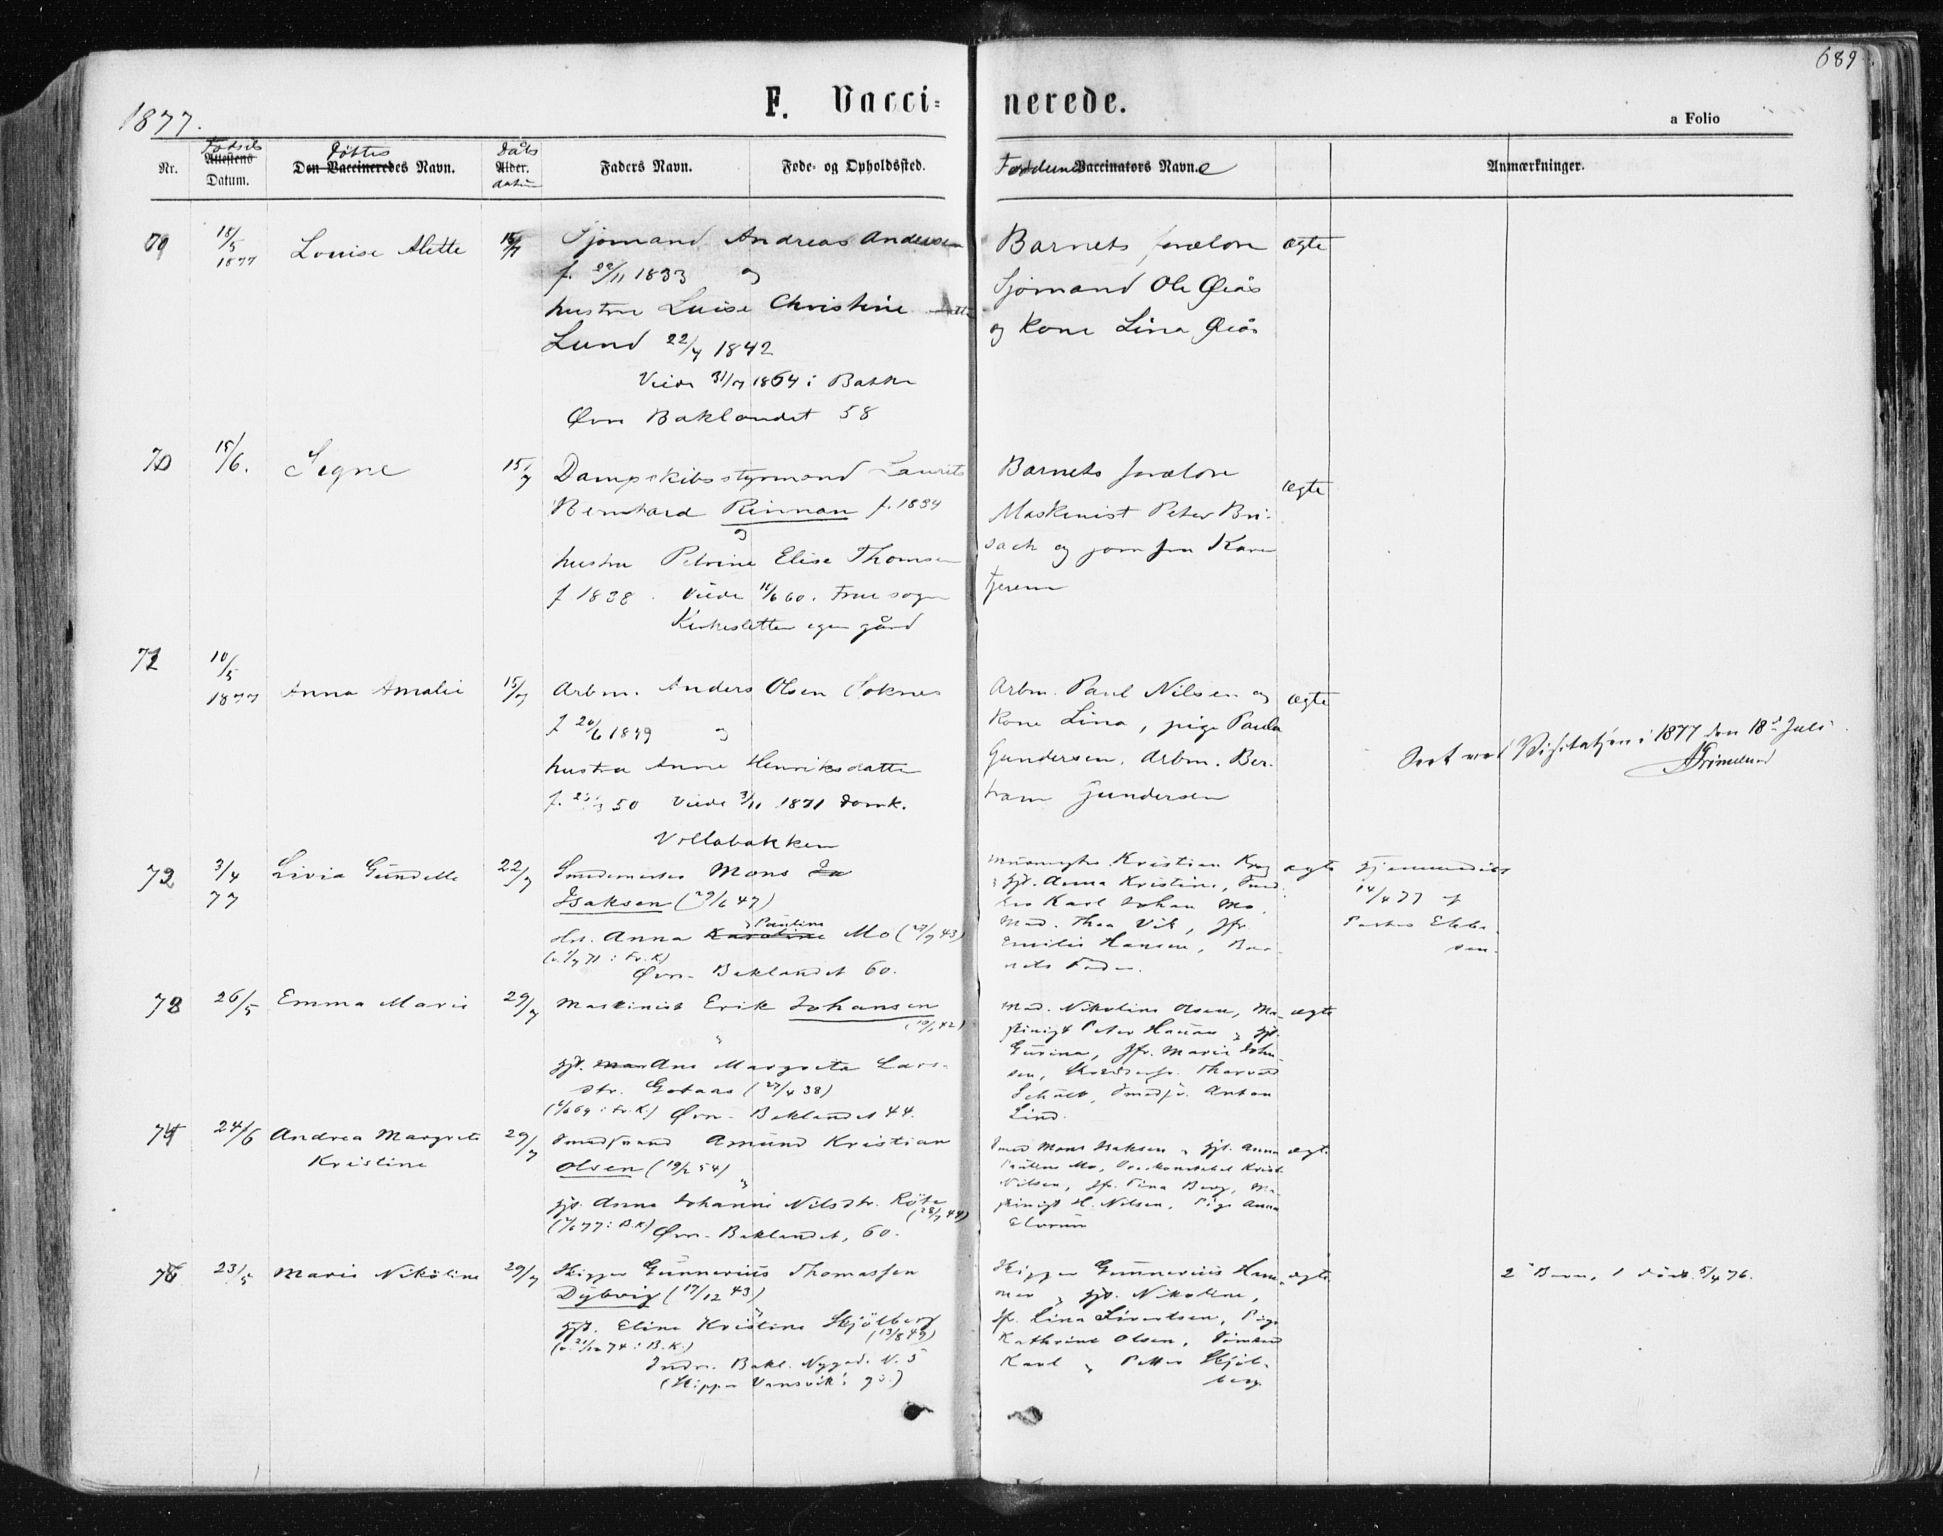 689
1877.
F. Vacci-
nerede.
a Folio
Nr.
Fødsels
Attestens
Datum.
Døttes
Den Vaccineredes Navn.
Dåbs
Alder.
datum
Faders Navn.
Føde- og Opholdssted.
Vaccinators Navn.
Anmærkninger.
15/5
1877
Louise Alette
15/7
Sjømand Andreas Andersen
f. 22/11 1833 og
hustru Luise Christine
Lund 22/7 1842
Viede 31/7 1864 i Bakke
Øvre Baklandet 58
Barnets forældre
Sjømand Ole Øiås
og kone Lina Øiås
ægte
70
15/6.
Signe
15/7
Dampskibsstyrmand Laurits
Bernhard Rinnan f. 1834
og
hustru Petrine Elise Thomsen
f 1838. Viede 11/6 60. Frue sogn
Kirkesletten egen gård
Barnets forældre
Maskinist Peter Bri-
sach og jomfru Karen
Tjerem
ægte
71
10/5
1877
Anna Amalie
15/7
Arbm. Anders Olsen Soknes
f 20/6 1849 og
hustru Anne Henriksdatter
50 Viede 3/11 1871 Domk.
Vollabakken
Arbm. Paul Nilsen og
kone Lina, pige Paula
Gundersen, Arbm. Ber-
tram Gundersen
ægte
Seet ved Visitatsen i 1877 den 18de Juli
Grimelund
72
3/4
77
Livia Gundelle
22/7
Smedemester Mons Is
Isaksen (29/6 47)
Pauline
Anna Karoline Mo (27/7 43)
71 : Fr. K)
Øvre Baklandet 60.
Kristian Krog
& Hst. Anna Kristine, Smed
Karl Johan Mo,
Mad. Thea Vik, Jfr.
Emilie Hansen, Bar-
nets Fader.
ægte
Hjemmedøbt
14/4 77 af
Pastor Ebbe-
sen.
73
26/5
Emma Marie
29/7
Maskinist Erik Johansen
(19/1 42)
&
Hst. Mar Ane Margrete Lars-
dtr. Gotaas (27/4 38)
69 : Fr. K) Øvre Baklandet 44.
Mad. Nikoline Olsen, Ma-
skinist Peter Hanan & Hst.
Gurina, Jfr. Marie John-
sen, Thorvald
Schult, Smedsv. Anton
Lind.
ægte
74
24/6
Andrea Margrete
Kristine
29/7
Smedsvend Amund Kristian
Olsen (19/2 54)
&
Hst. Anna Johanne Nilsdtr. Röte
(28/7 44)
77 : B. K) Øvre Baklandet, 60.
Smed Mons Isaksen & Hst. Anna
Pauline Mo, Krist.
Nilsen, Jfr. Tina Berg, Ma-
skinist H. Nilsen, Pige Anna
ægte
23/5
Marie Nikoline
29/7
Skipper Gunnerius Thomassen
Dybvig (17/12 43)
&
Hst. Eline Kristine Skjölberg
(13/8 49)
74 : B. K.)
Indre Bakl. Nygad. N. 5
(Skipper Vansvik's gd.)
Skipper Gunnerius Ham-
mer & Hst. Nikoline,
Jfr. Lina Sivertsen, Pige
Kathrine Olsen, Tømmermd
Karl & Petter Skjöl-
berg.
ægte
2' Barn, 1 död f. 5/4 76.